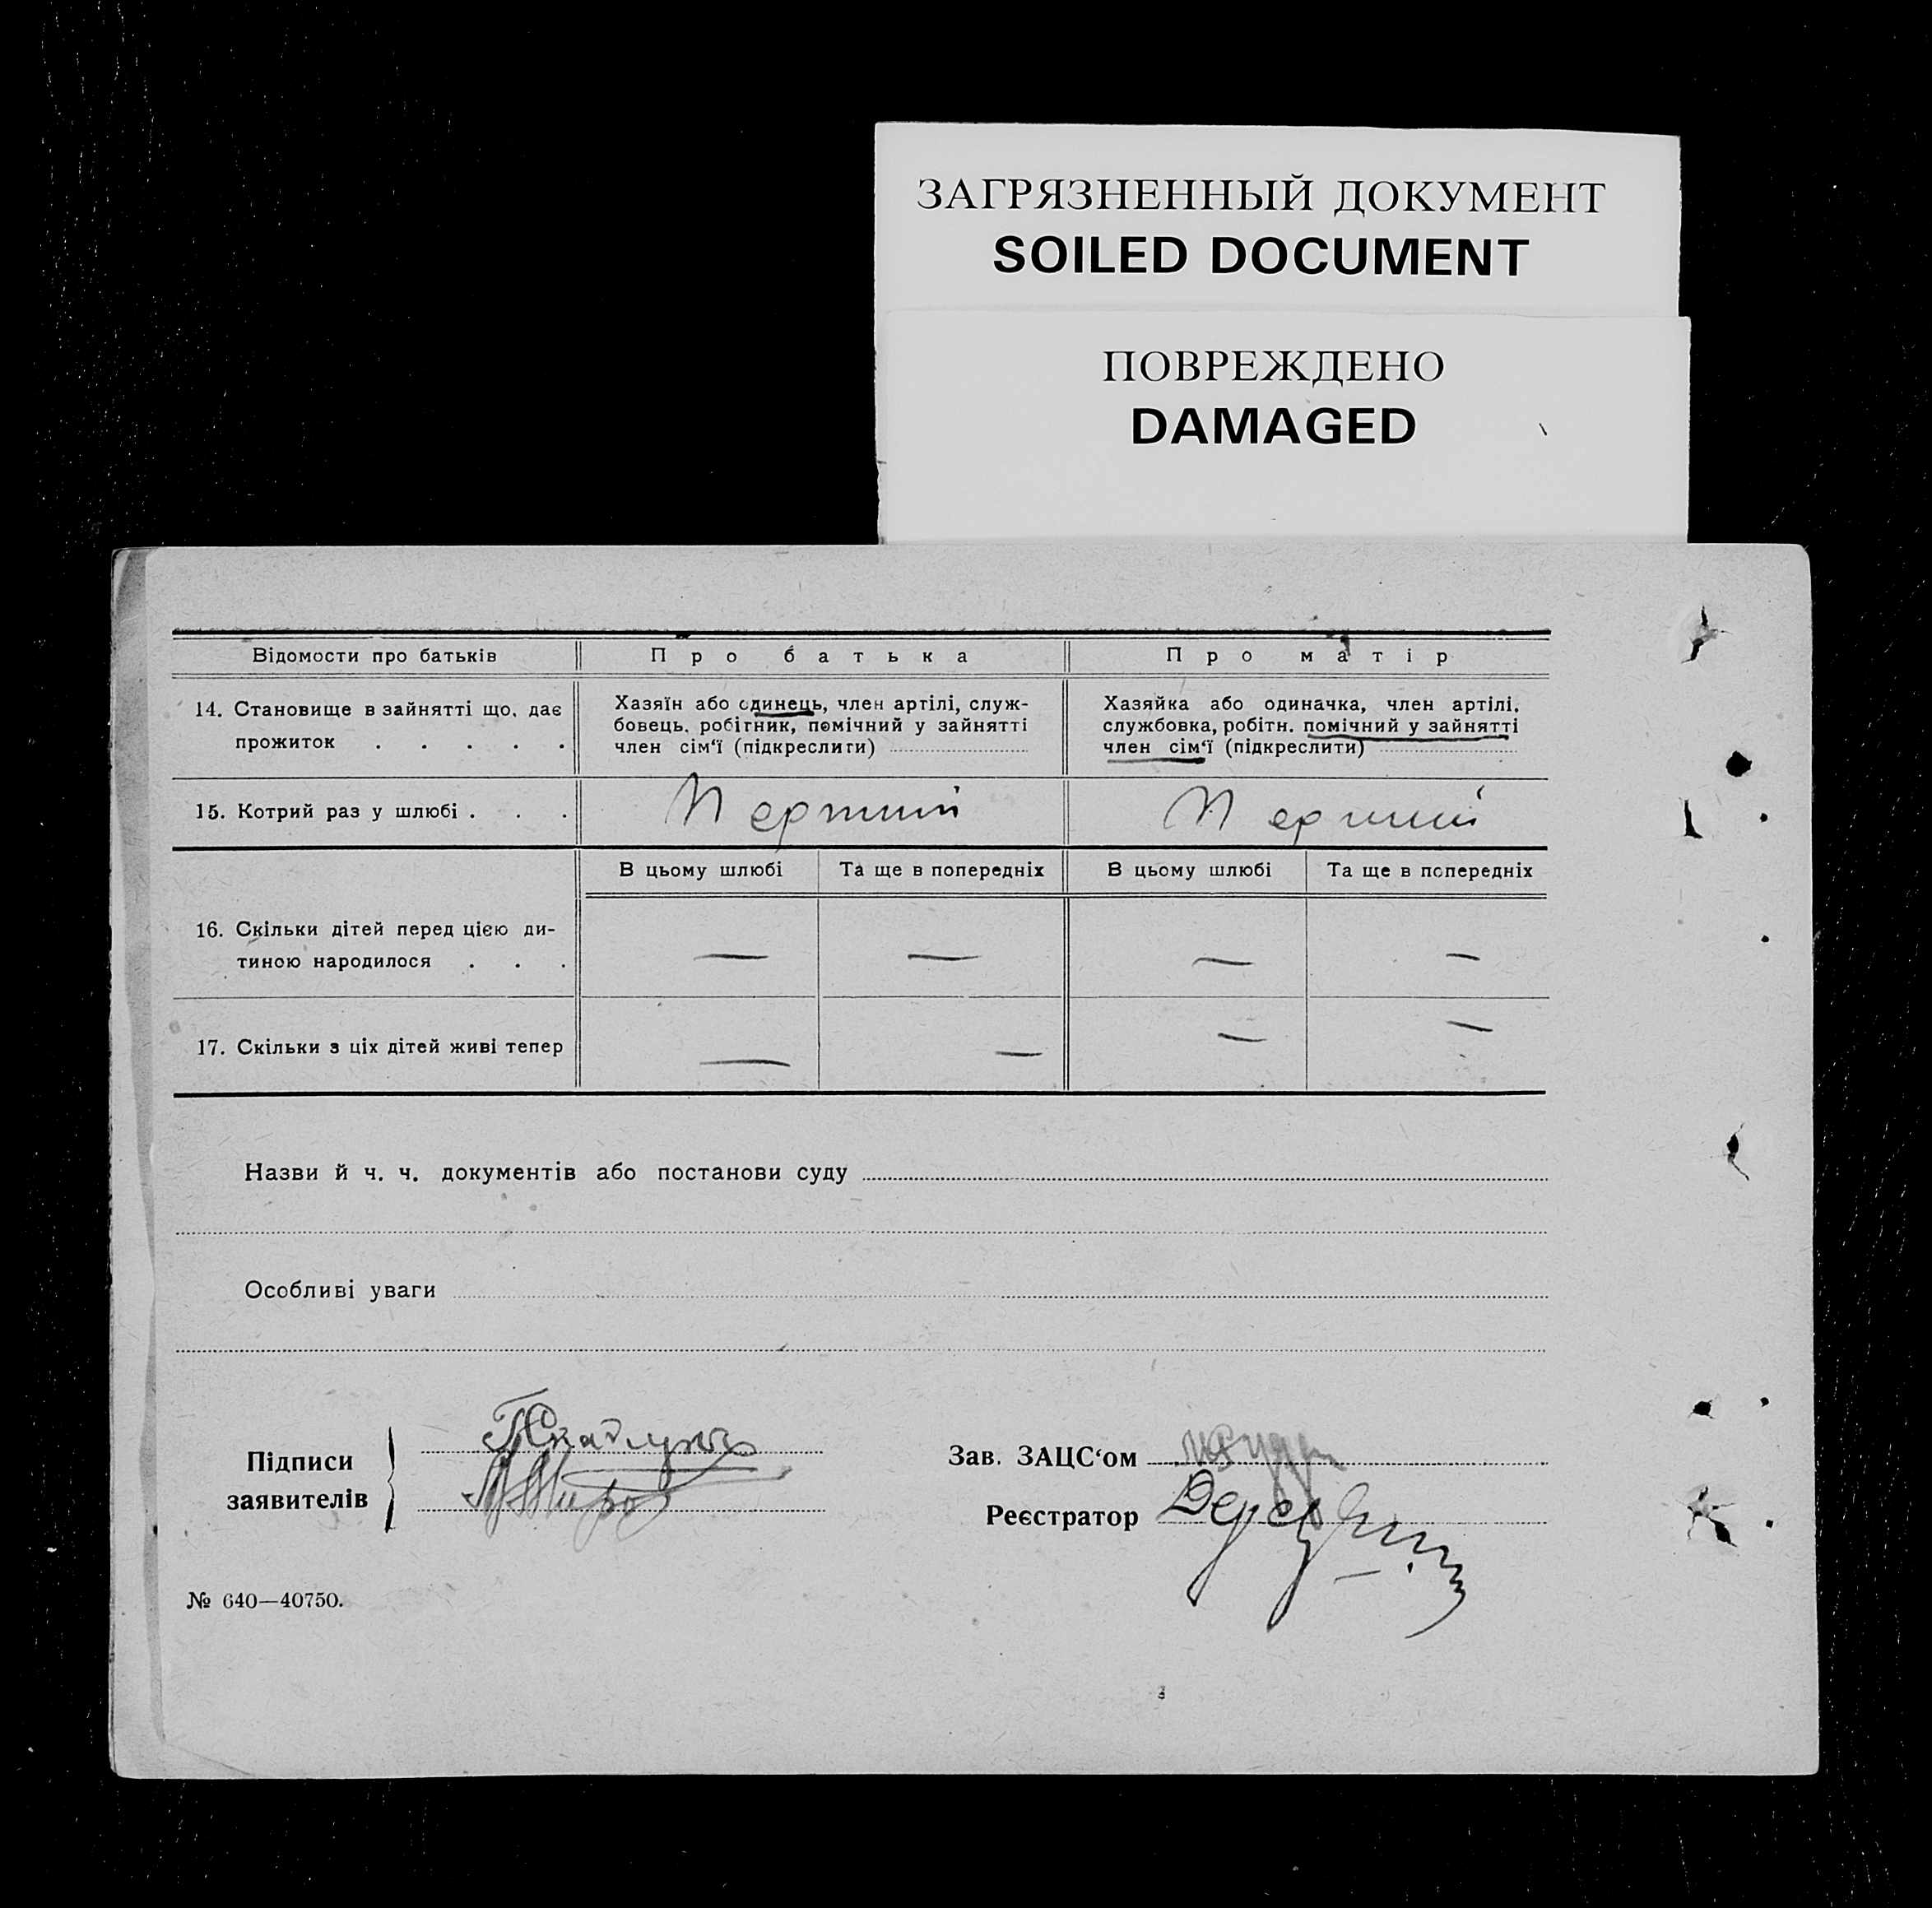 ЗАГРЯЗНЕННЫЙ ДОКУМЕНТ
SOILED DOCUMENT
ПОВРЕЖДЕНО
DAMAGED
Відомости про батьків Про батька Про матір
14. Становище в зайнятті що, дає
прожиток . . . . .
Хазяїн або одинець, член артілі, служ-
бовець, робітник, помічний у зайнятті
член сім‘ї (підкреслити)
Хазяйка або одиначка, член артілі,
службовка, робітн. помічний у зайнятті
член сім‘ї (підкреслити)
15. Котрий раз у шлюбі . . . Перший Перший
В цьому шлюбі Та ще в попередніх В цьому шлюбі Та ще в попередніх
16. Скільки дітей перед цією ди-
тиною народилося . . . — — — —
17. Скільки з ціх дітей живі тепер — — — —
Назви й ч. ч. документів або постанови суду
Особливі уваги
Підписи
заявителів
Зав. ЗАЦС‘ом
Реєстратор
№ 640—40750.